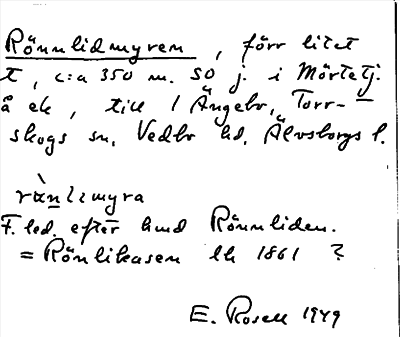 Rönnlidmyren, förr litet
t, c:a 350 m. SO j. i Mörtetj.
å ek, till 1 Ängebr, Torr-
skogs sn, Vedbo hd, Älvsborgs l.
ræ̀nlimyra
F. led. efter hmd Rönnliden.
= Rönlikasen lk 1861 ?
E. Rosell 1949